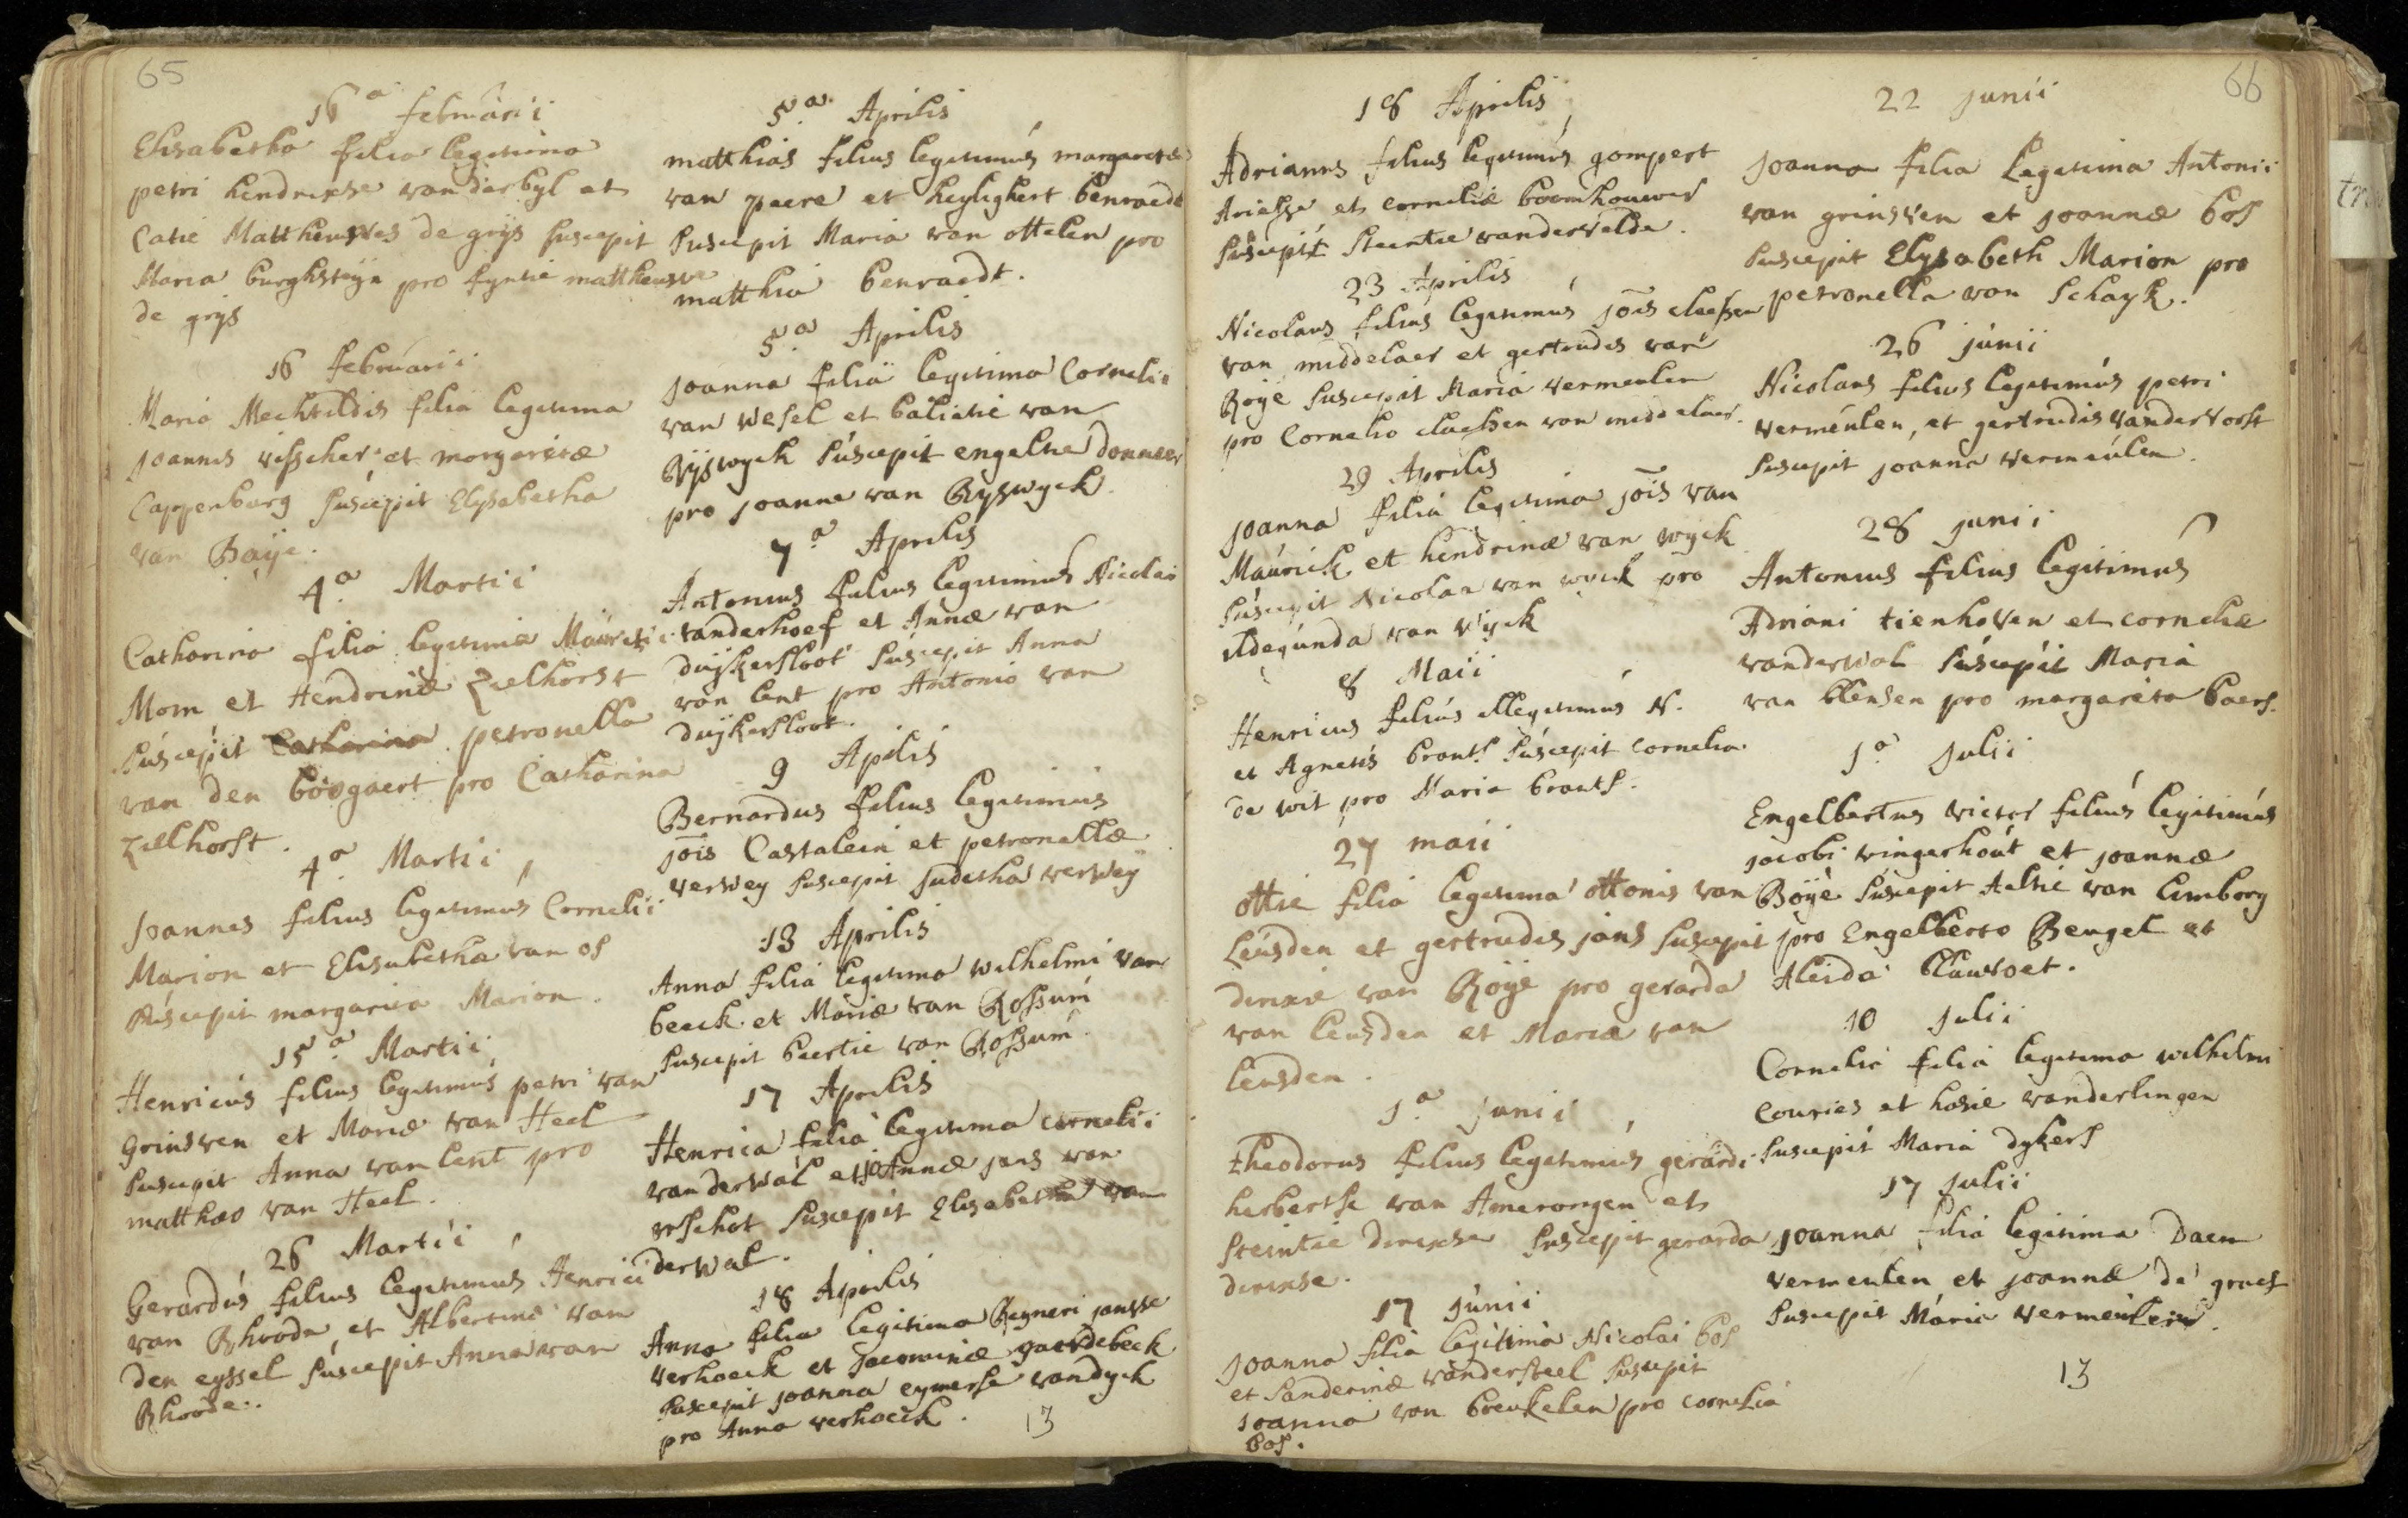 65
16ª februarii
Elisabetha filia legitima
petri hendrixse vanderbyl et
Catie Mattheusves de grijs suscepit
Maria burghsteyn pro fyntie mattheusve
de grijs
16 februarii
Maria Mechtildis filia legitima
Joannis visscher et margaritæ
Cappenburg suscepit Elysabetha
van Baije.
4ª Martii
Catharina filia legitima Mauritii
Mom et Hendrinæ Zielhorst
suscepit Catharina petronella
van den boogaert pro Catharina
zielhorst.
4ª Martii
Joannes filius legitimus Cornelii
Marion et Elisabetha van os
suscepit margarita Marion.
15ª Martii
Henricus filius legitimus petri van
Grinsven et Mariæ van Heel
suscepit Anna van lent pro
matthæo van Heel.
26 Martii
Gerardus filius legitimus Henrici
van Rhoode et Albertinæ van
den eyssel suscepit Anna van
Rhoode.
5ª Aprilis
matthias filius legitimus margaretæ
van peere et heylighert benraedt
suscepit Maria van ottelen pro
matthia benraedt.
5ª Aprilis
Joanna filia legitima Cornelii
van Wesel et baliatie van
Ryswyck suscepit engeltie donneer
pro Joanna van Ryswyck.
7ª Aprilis
Antonius filius legitimus Nicolai
vanderhoef et Annæ van
duijkersloot suscepit Anna
van lent pro Antonio van
duijkersloot.
9 Aprilis
Bernardus filius legitimus
jois Castalein et petronellæ
verwey suscepit Juditha verwey
13 Aprilis
Anna filia legitima wilhelmi van
beeck et Mariæ van Rossum
suscepit beertie van Rossum.
17 Aprilis
Henrica filia legitima cornelii
vanderwal et joannæ jans van
orschot suscepit Elisabetha van
derwal.
18 Aprilis
Anna filia legitima Reyneri jansse
verhoeck et Jacominæ gaesdebeck
suscepit joanna eymerse vandyck
pro Anna verhoeck.
13
66
18 Aprilis
Adrianus filius legitimus gompert
Arielse et corneliæ boomhouwer
suscepit Steintie vandervelde.
23 Aprilis
Nicolaus filius legitimus jois claessen
van middelaer et gertrudis van
Roye suscepit Maria vermeulen
pro Cornelio claessen van middelaer.
29 Aprilis
Joanna filia legitima jois van
Maurick et hendrinæ van wyck
suscepit Nicolaa van wyck pro
ildegunda van wyck
8 Maii
Henricus filius illegitimus N.
et Agnetis brants suscepit cornelia
de wit pro Maria brants.
27 maii
ottie filia legitima ottonis van
Leusden et gertrudis jans suscepit
dirixie van Roye pro gerarda
van leusden et Maria van
leusden.
1ª Junii
theodorus filius legitimus gerardi
herbertse van Amerongen et
Steintie dirixse suscepit gerarda
dirixse.
17 Junii
Joanna filia legitima Nicolai bos
et Sanderinæ vandersteel suscepit
Joanna van breukelen pro cornelia
bos.
22 Junii
Joanna filia legitima Antonii
van grinsven et joannæ bos
suscepit Elysabeth Marion pro
petronella van Schayk.
26 junii
Nicolaus filius legitimus petri
vermeulen, et gertrudis vandervorst
suscepit joanna vermeulen.
28 junii
Antonius filius legitimus
Adriani tienhoven et corneliæ
vanderwal suscepit Maria
van blensen pro margareta baers.
1ª Julii
Engelbertus victor filius legitimus
jacobi wingerhout et joannæ
Boye suscepit Aeltie van limborg
pro Engelberto Bengel et
Aleida blauvoet.
10 Julii
Cornelia filia legitima wilhelmi
Couries et hosie vanderlingen
suscepit Maria dykers
17 Julii
joanna filia legitima Daem
vermeulen et joannæ de graef
suscepit Maria vermeulen.
13